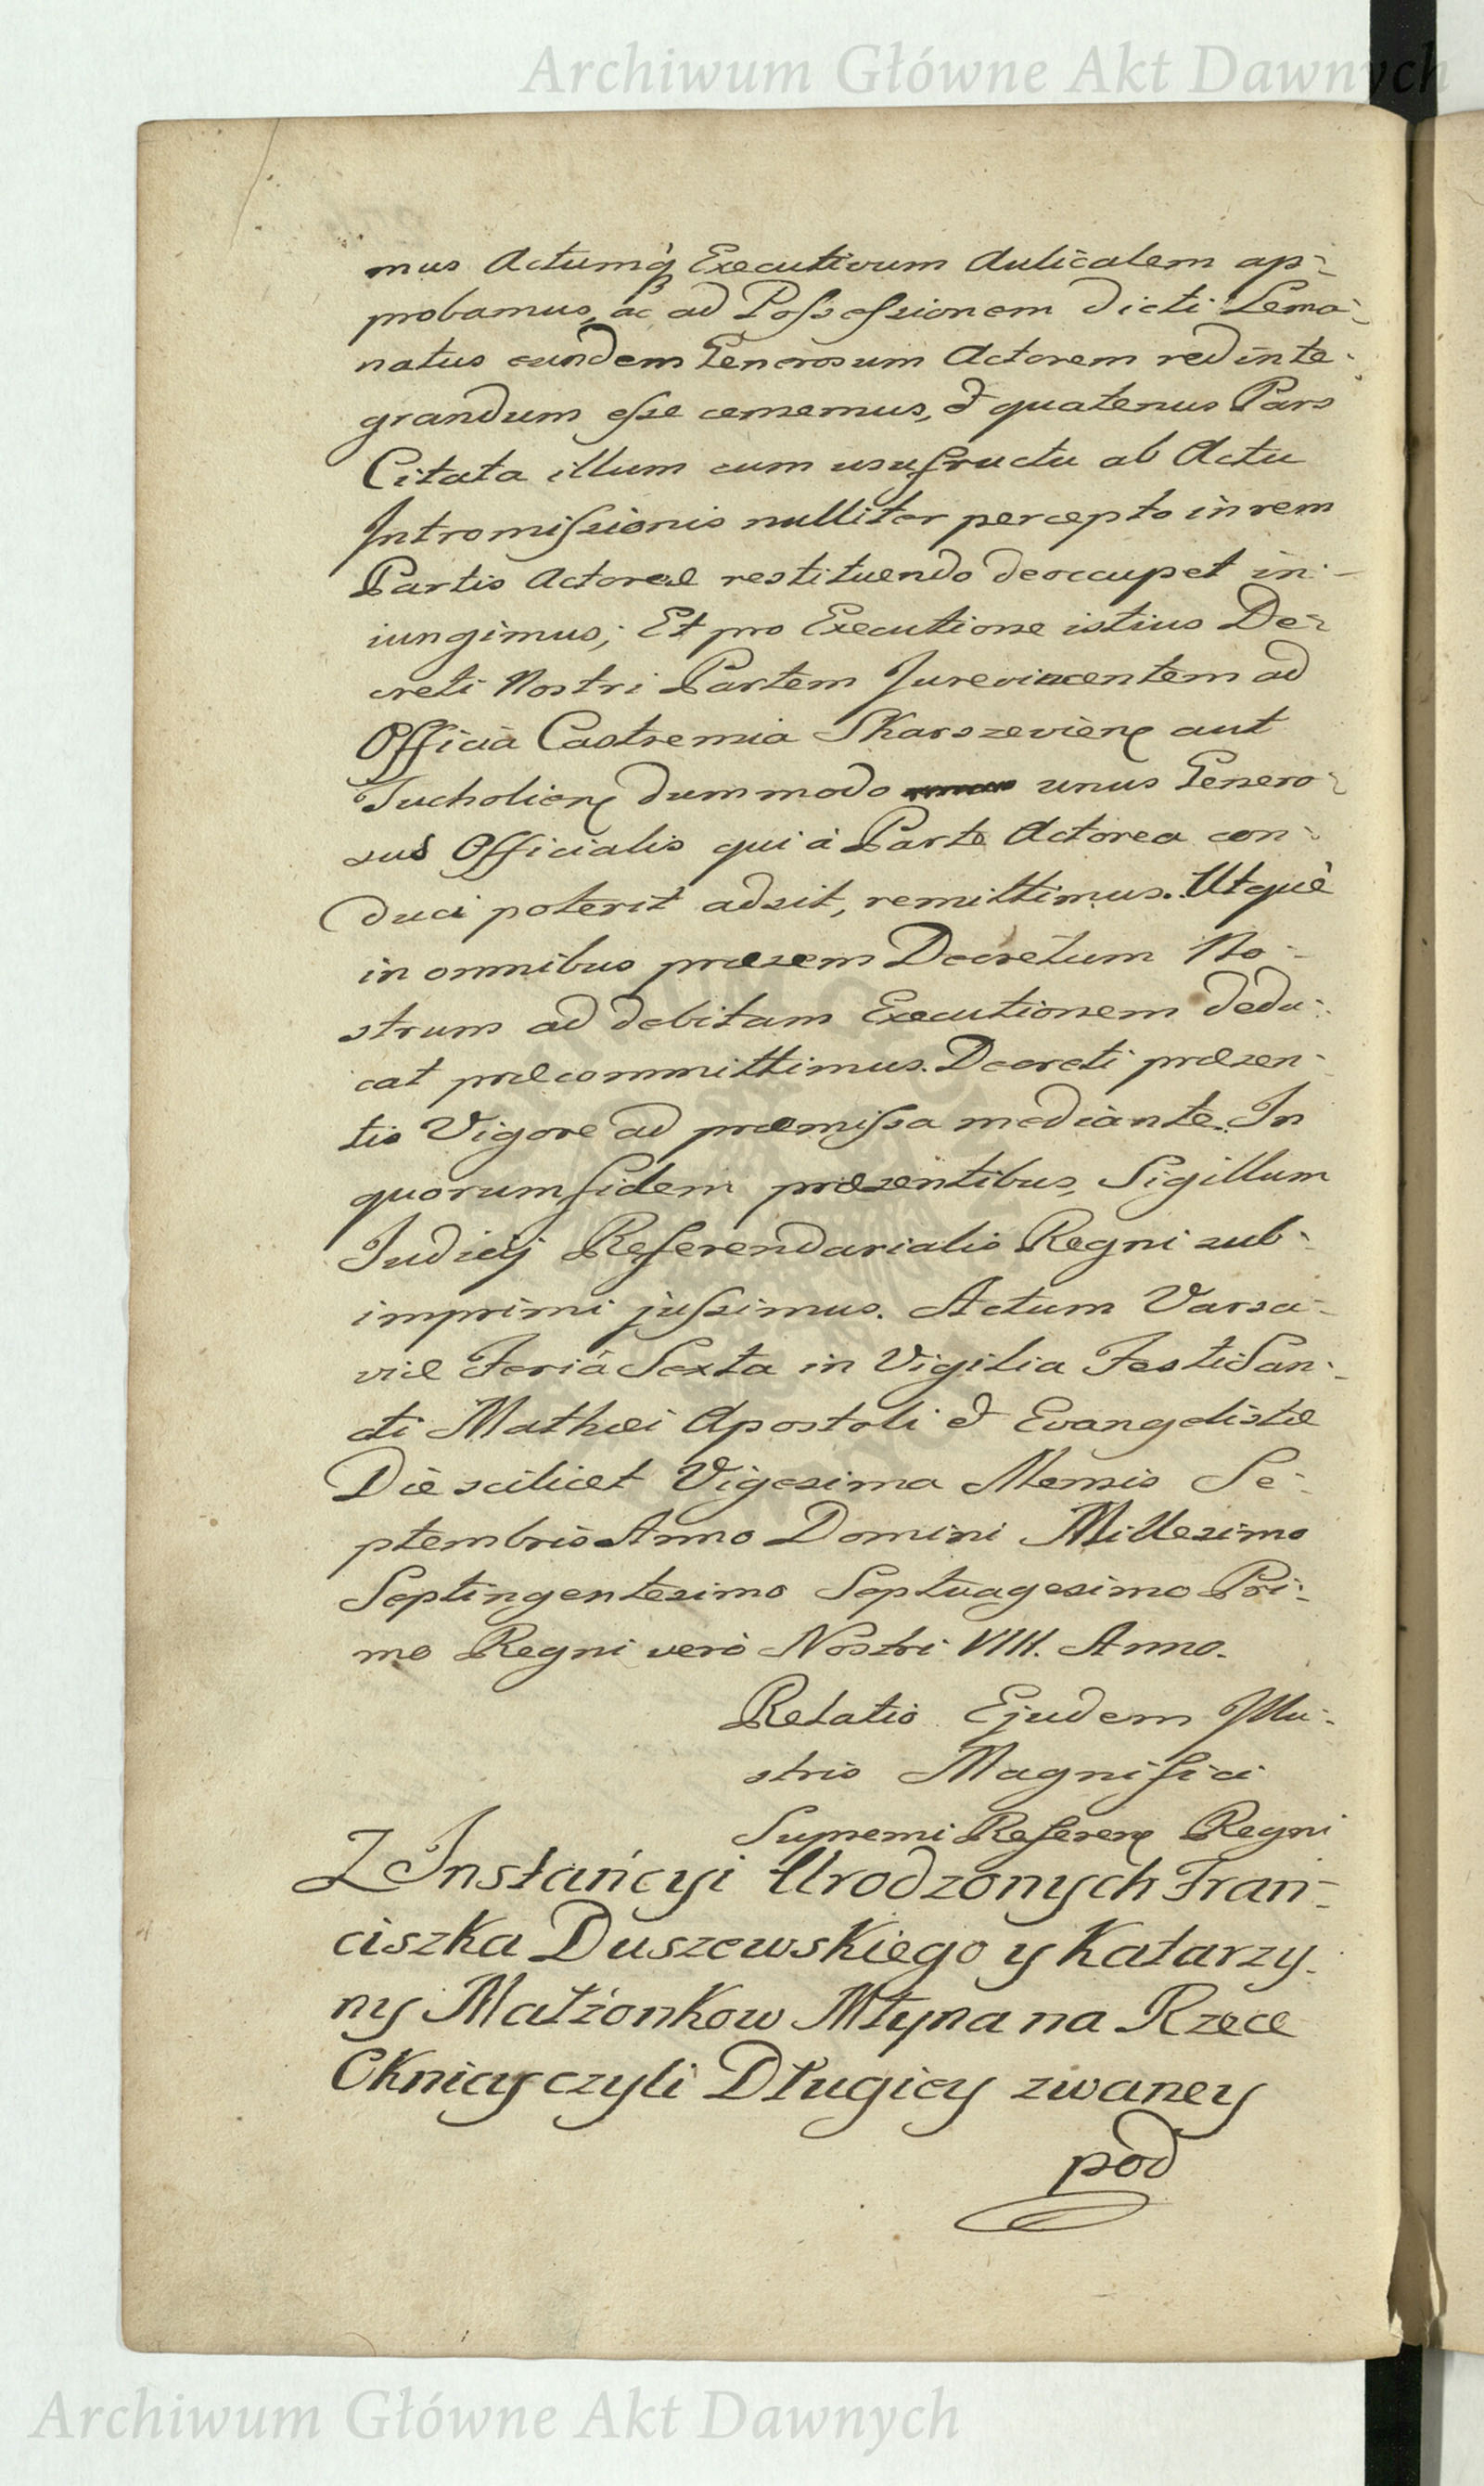 Archiwum Główne Akt Dawnych
mus Actumq́ Executivum Aulicalem ap-
probamus, ac ad Poſseſsionem dicti Lema-
natus eundem Generosum Actorem redinte-
grandum eſse censemus, & quatenus Pars
Citata illum cum usufructu ab Actu
Intromiſsionis nulliter percepto in rem
Partis Actoreæ restituendo deoccupet in-
iungimus; Et pro Executione istius De-
creti Nostri Partem Jurevincentem ad
Officia Castrensia Skarszevien aut
Tucholien dummodo unus Genero-
sus Officialis qui à Parte Actorea con-
duci poterit adsit, remittimus. Utquè
in omnibus præsens Decretum No-
strum ad debitam Executionem dedu-
cat præcommittimus. Decreti præsen-
tis Vigore ad præmiſsa mediante. In
quorum fidem præsentibus, Sigillum
Judicij Referendarialis Regni sub-
imprimi juſsimus. Actum Varsa-
viæ Feriâ Sexta in Vigilia Festi San-
cti Mathæi Apostoli & Evangelistæ
Die scilicet Vigesima Mensis Se-
ptembris Anno Domini Millesimo
Septingentesimo Septuagesimo Pri-
mo Regni verò Nostri VIII. Anno.
Relatio Ejusdem Illu-
stris Magnifici
Supremi Referen Regni
Z Instańcyi Urodzonych Fran-
ciszka Duszewskiego y Katarzy-
ny Małżonkow Młyna na Rzece
Okniey czyli Długiey zwaney
pod
Archiwum Główne Akt Dawnych